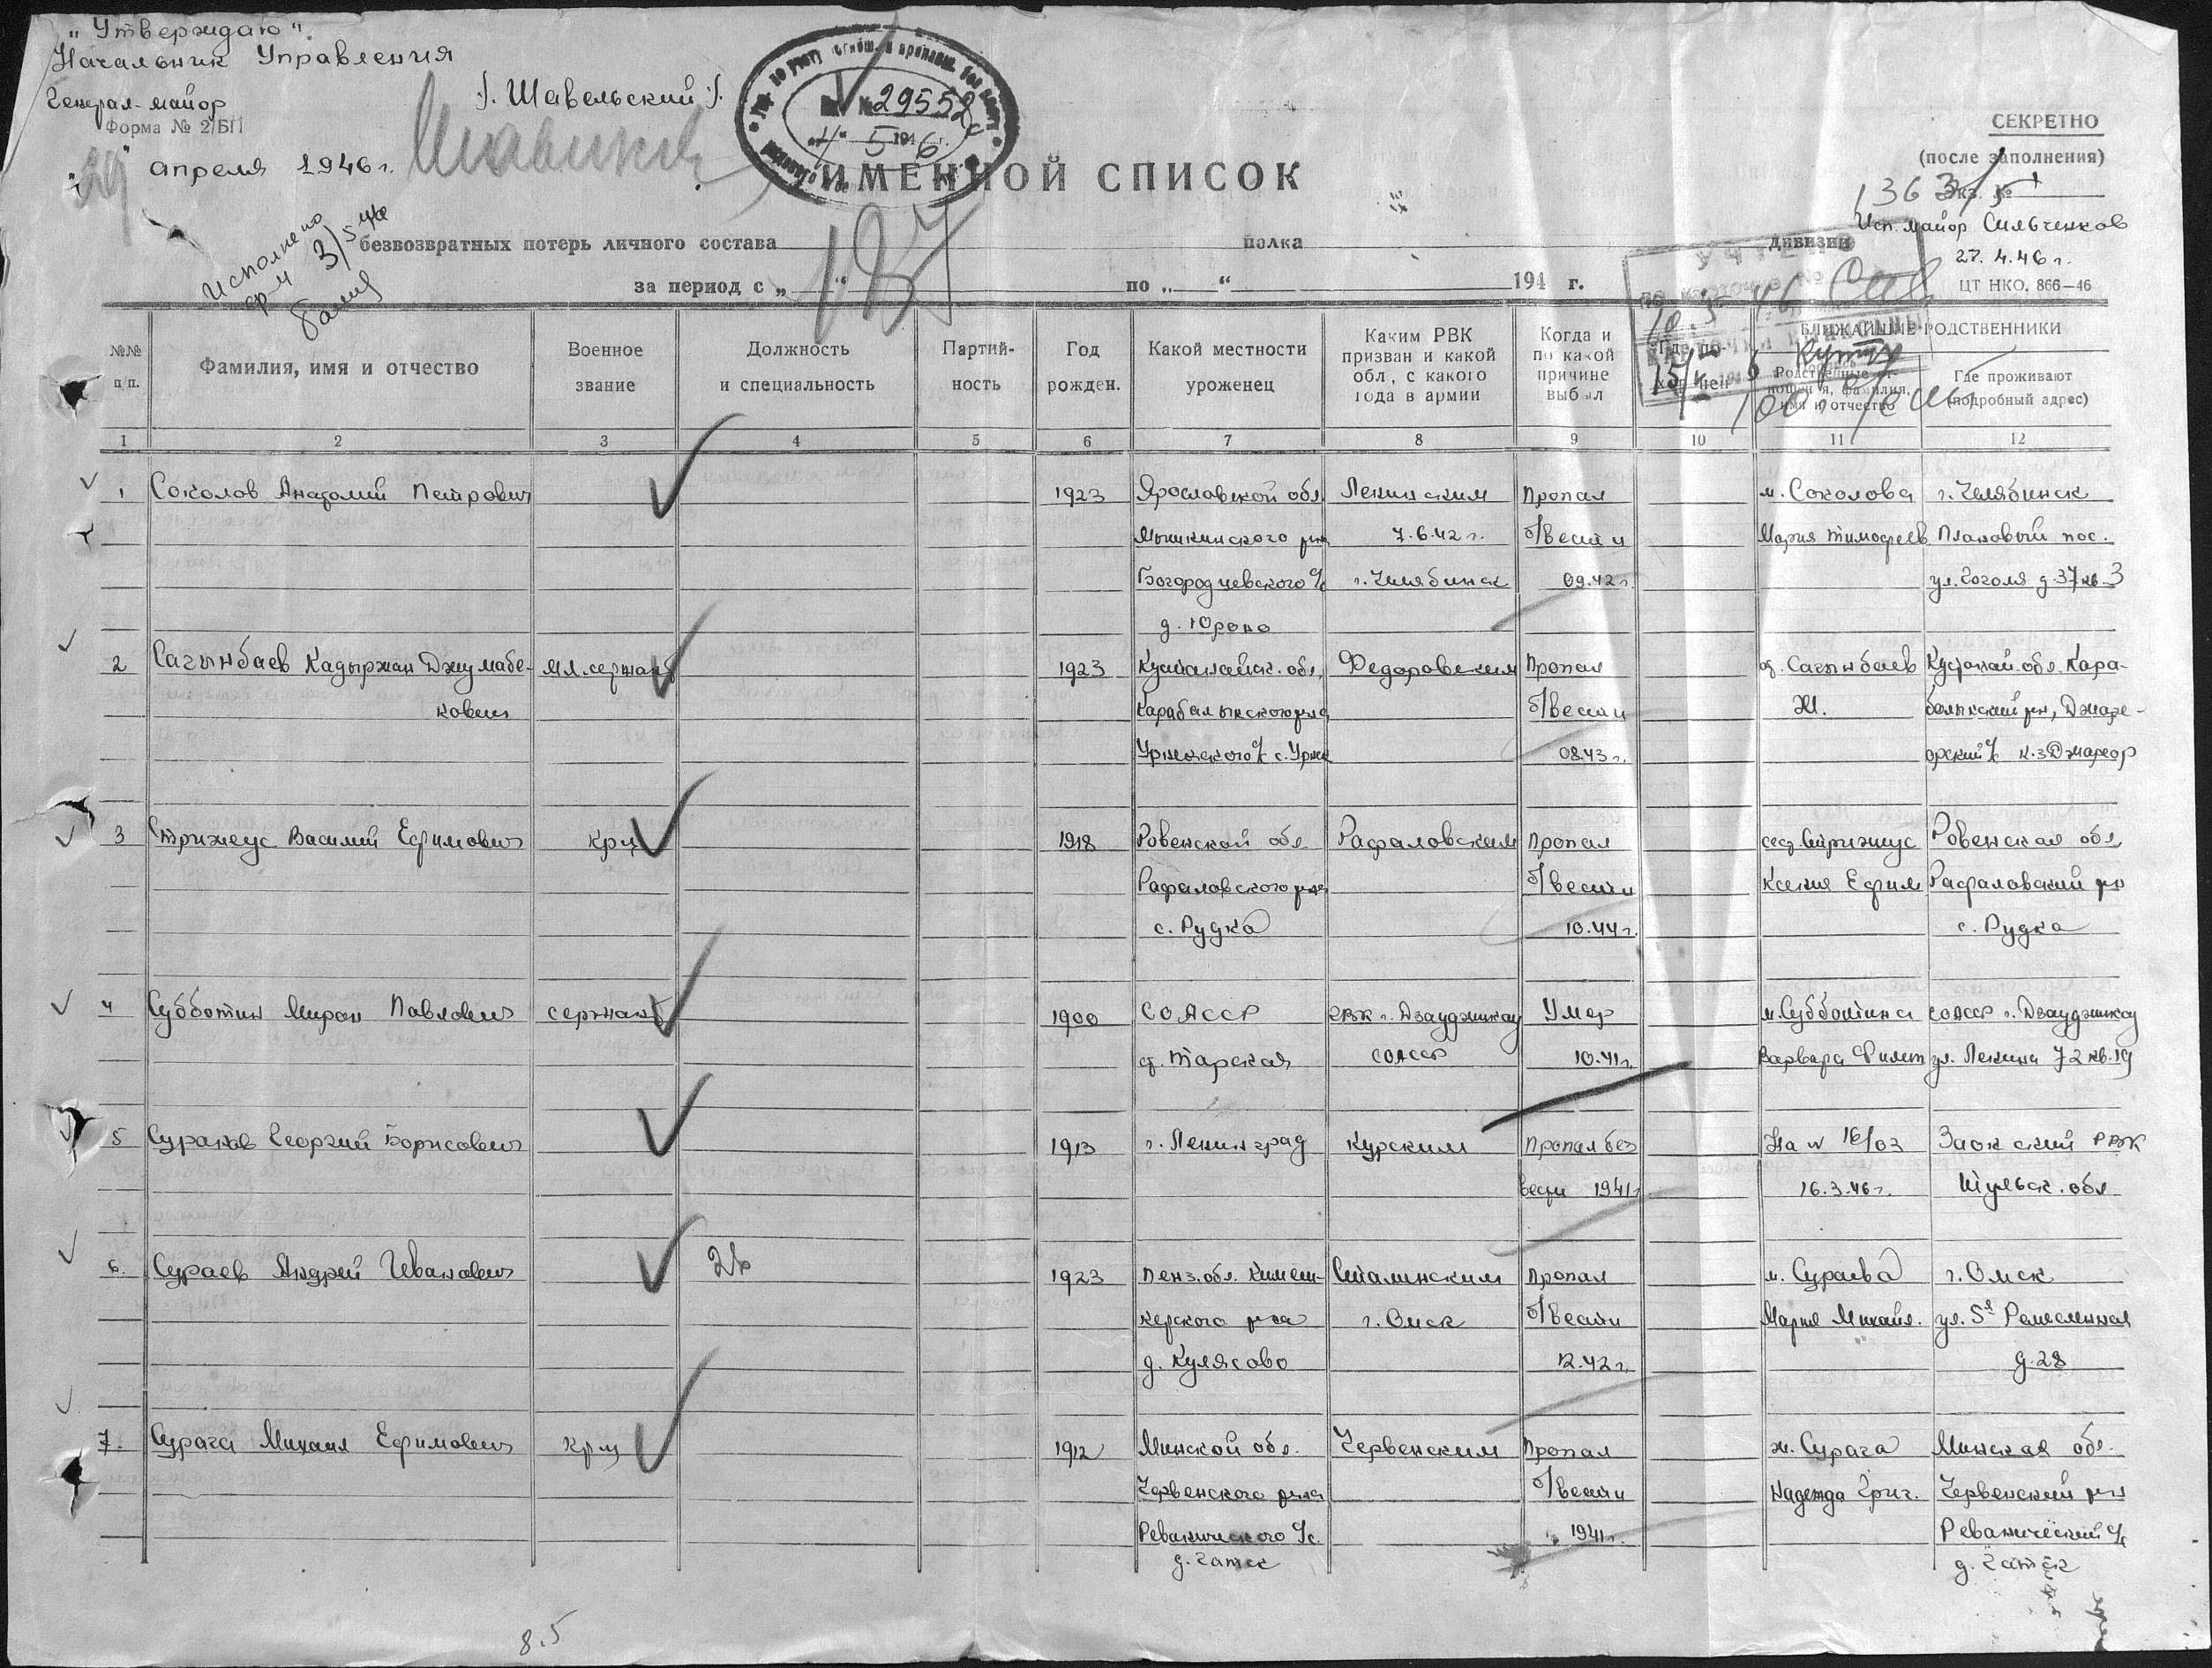 „Утверждаю"
Начальник Управления
Генерал-майор /. Шавельский /.
Форма № 2/БП
29 апреля 1946 г.
№ 29552с
"4" 5 1946 г.
СЕКРЕТНО
(после заполнения)
Экз. №
Исп. майор Сильченков
27.4.46 г.
ЦТ НКО. 866—46
ИМЕННОЙ СПИСОК
Исполнено
безвозвратных потерь личного состава полка дивизии
за период с „ “ по „ “ 194 г.
УЧТЕН
№№ п/п. Фамилия, имя и отчество Военное звание Должность и специальность Партийность Год рожден. Какой местности уроженец Каким РВК призван и какой обл, с какого года в армии Когда и по какой причине выбыл БЛИЖАЙШИЕ РОДСТВЕННИКИ
Где проживают (подробный адрес)
1 2 3 4 5 6 7 8 9 10 11 12
1 Соколов Анатолий Петрович 1923 Ярославской обл Ленинским Пропал м. Соколова г. Челябинск
Мышкинского р-на 7.6.42 г. б/вести Мария Тимофеев Плановый пос.
Богородцевского с/с г. Челябинск 09.42 г. ул. Гоголя д. 37 кв. 3
д. Юрово
2 Сагынбаев Кадыржан Джумабе- мл. сержант 1923 Кустанайск. обл. Федоровским Пропал от. Сагынбаев Кустанай. обл. Кара-
кович Карабалыкского р-на б/вести Ж. балыкский рн, Джаре-
с. Урнек 08.43 г. орский с/с к-з Джареор
3 Стрижеус Василий Ефимович кр-ц 1918 Ровенской обл Рафаловским Пропал сест. Стрижеус Ровенская обл
Рафаловского р-на б/вести Ксения Ефим Рафаловский рн
с. Рудка 10.44 г. с. Рудка
4 Субботин Мирон Павлович сержант 1900 СОАССР РВК г. Дзауджикау Умер м. Субботина СОАССР г. Дзауджикау
ст. Тарская СОАССР 10.41 г. Варвара Филип ул. Ленина 72 кв. 19
5 Суранов Георгий Борисович 1913 г. Ленинград Курским Пропал без На № 16/03 Заокский РВК
вести 1941 г 16.3.46 г. Тульск. обл
6. Сураев Андрей Иванович 1923 Пенз. обл. Камеш- Сталинским Пропал м. Сураева г. Омск
керского р-на г. Омск б/вести Мария Михайл. ул. 5я Ремесленная
д. Кулясово 12.42 г. д. 28
7. Сурага Михаил Ефимович кр-ц 1912 Минской обл. Червенским Пропал ж. Сурага Минская обл.
Червенского р-на б/вести Надежда Григ. Червенский рн
Реваничского с/с. 1941 г. Реваничский с/с
д. Гатск д. Гатск
8.5